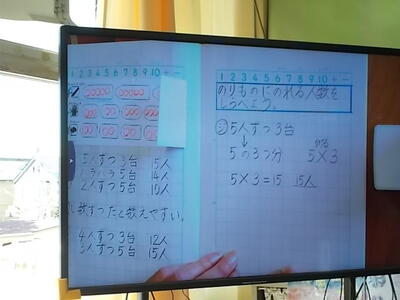 1 2 3 4 5 6 7 8 9 10 + -
5人ずつ 3台 15人
2人ずつ 5台 10人
数ずつだと数えやすい。
4人ずつ 3台 12人
3人ずつ 5台 15人
1 2 3 4 5 6 7 8 9 10 + -
のりものにのれる人数を
しらべよう。
5人ずつ 3台
↓
5の3つ分
かける
5×3
5×3=15 15人